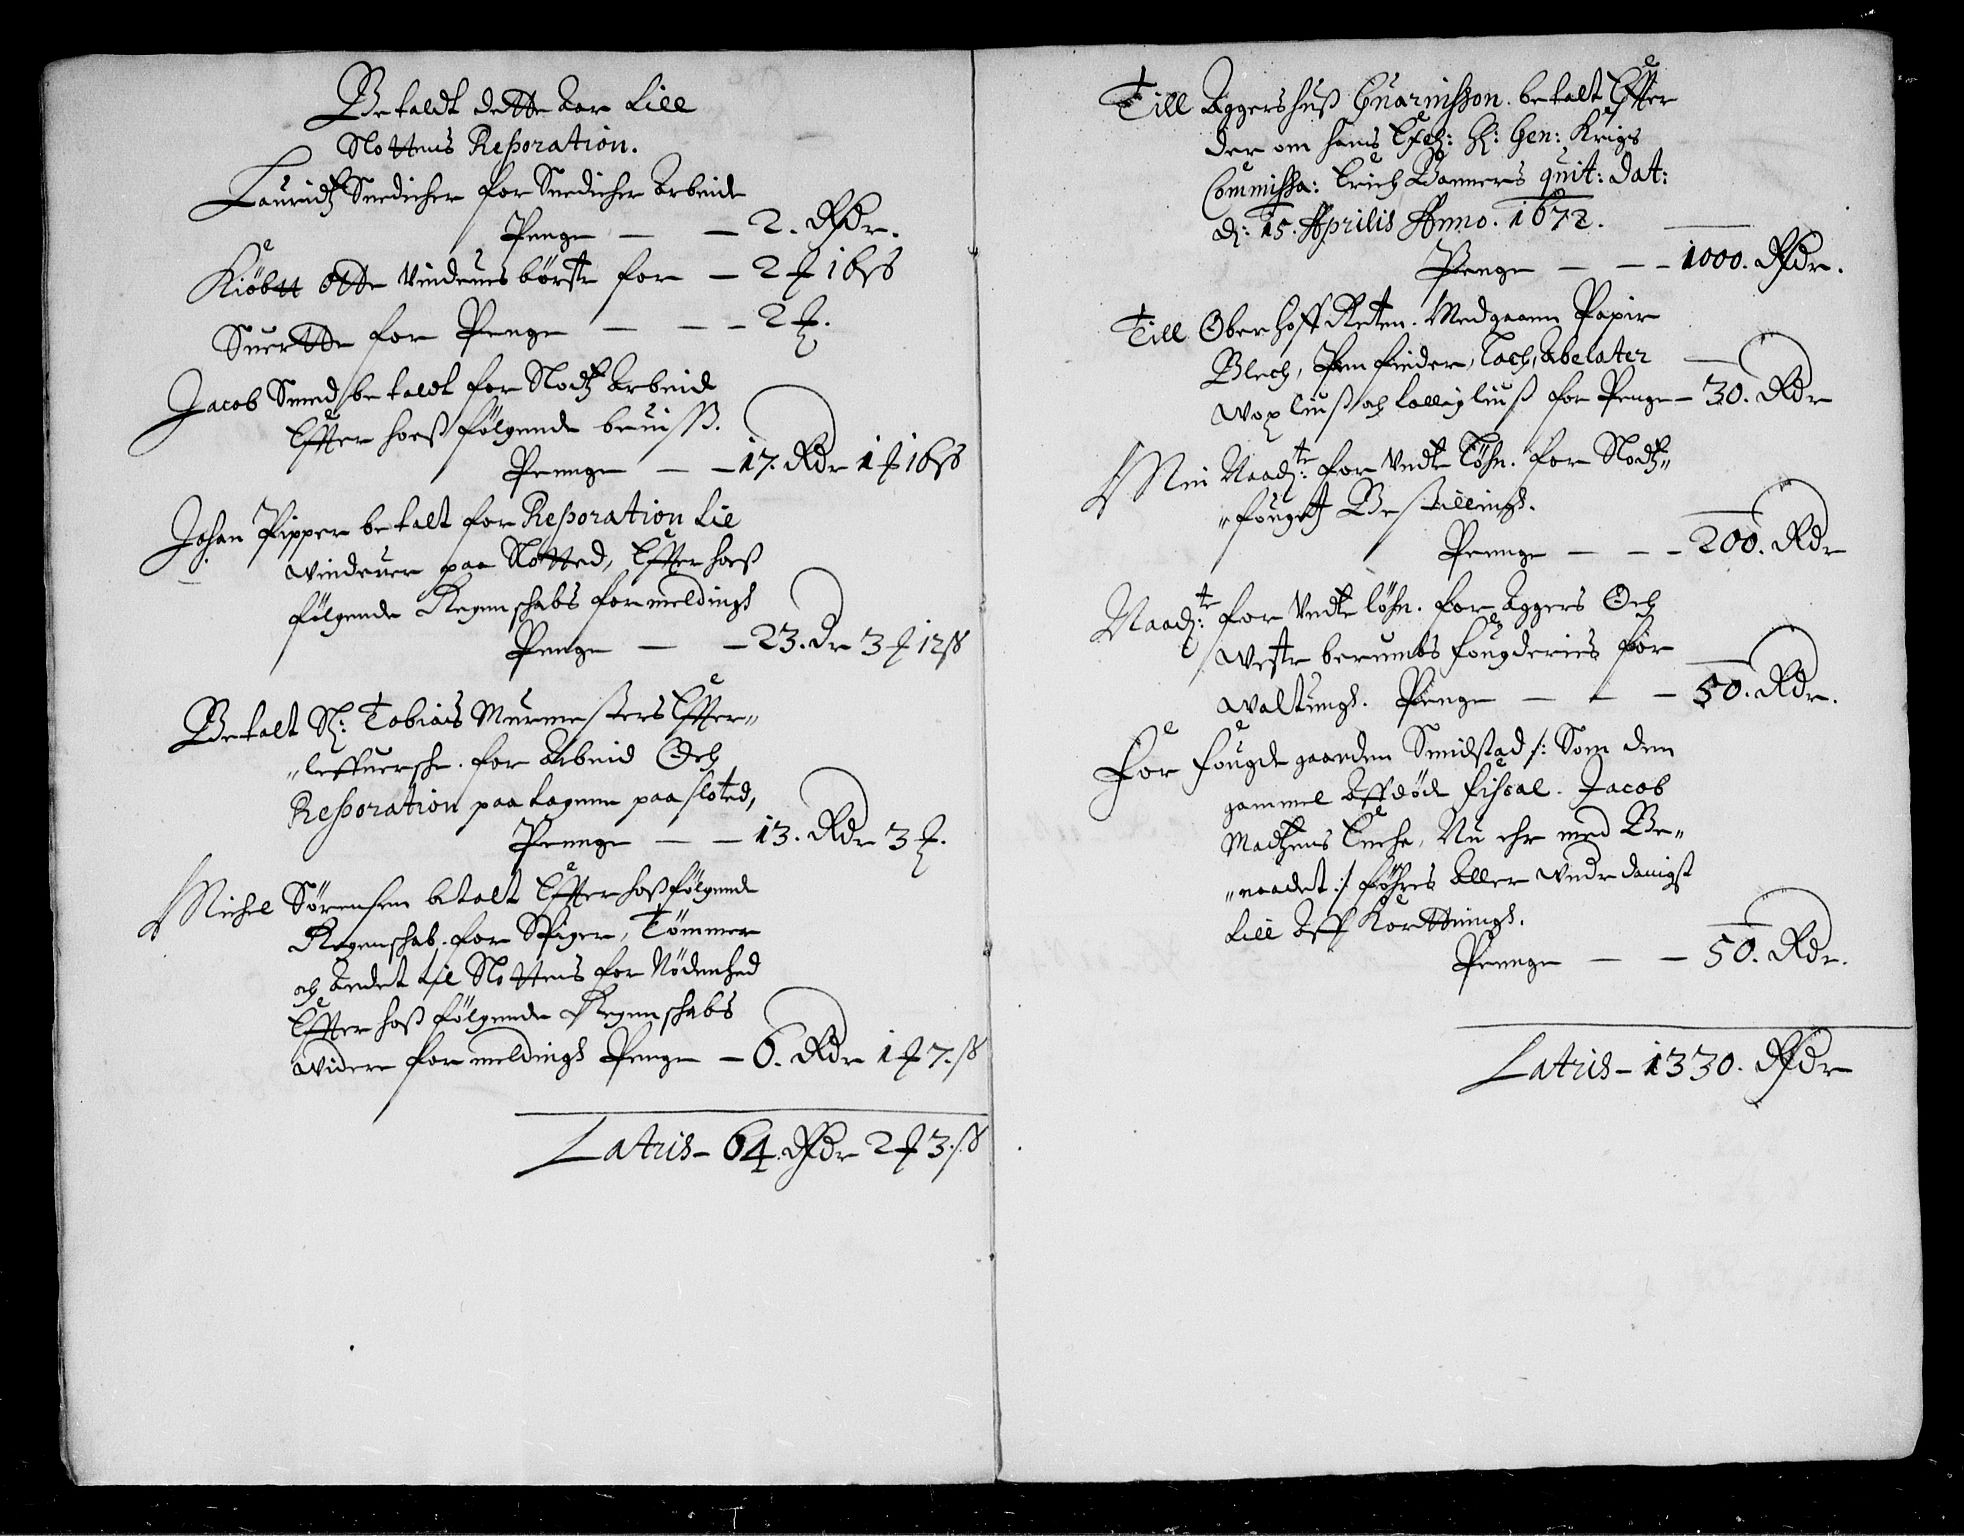 Betaldt dette Aar till
Slottens Reparation.
Lauridtz Snedicher for Snedicher Arbeide
Penge — — 2. Rixdr.
Kiöbtt Otte Vindeues börste for — 2 ₰ 16 ß
Suertte for Penge — — — 2 ₰.
Jacob Smed betaldt for Slodtz Arbeide
Effter hosfölgende beuiss.
Pennge — — 17. Rdr 1 ₰ 16 ß
Johan Pipper betalt for Reparation til
vinduer paa Slotted, Effter hoß
följgende Regenschabs formeldings
Penge — — 23. Dr 3 ₰ 12 ß
Betalt Sl: Tobias Murmesters Effter-
-leffuersche. for Arbeid Och
Reparation paa tagene paa sloted,
Pennge — — 13. Rdr 3 ₰.
Michel Sörensen betalt Effter hoßfölgende
Regenschab. for Spiger, Tömmer
och Andet til Slottens for Nödenhed
Effter hoß fölgende Regenschabs
videre formeldings Penge — 6. Rdr 1 ₰ 7. ß
Latris — 64. Rixdr 2 ₰ 3. ß
Till Aggershuß Guarnisson. betalt Effter
der om hans Excell: H: Gen: Krigs
Commissa: Erich Banners quit: Dat:
d: 15. Aprilis Anno. 1672.
Penge — — — 1000. Rixdr.
Till Oberhoff Retten. Medgaaen Papir
Blech, Penfieder, Lach, Abelater
Wox liuß och tallig liuß for Penge — 30. Rdr
Min Naadte: for Vndte Löhn. for Slodtz-
-fougett Bestillings.
Pennge — — — 200. Rdr
Naadte: for Vndte löhn. for Aggers Och
Westre berumbs fougderies for
waltungs. Penge — — — 50. Rdr.
For fougde gaarden Smidstad /: Som den
gammel Affdöde Fiscal. Jacob
Madtzens Enche, Nu ehr med Be-
-naadet :/ föhres Aller vnderdanigst
till Aff Korttnings.
Pennge — — 50. Rdr.
Latris — 1330. Rixdr